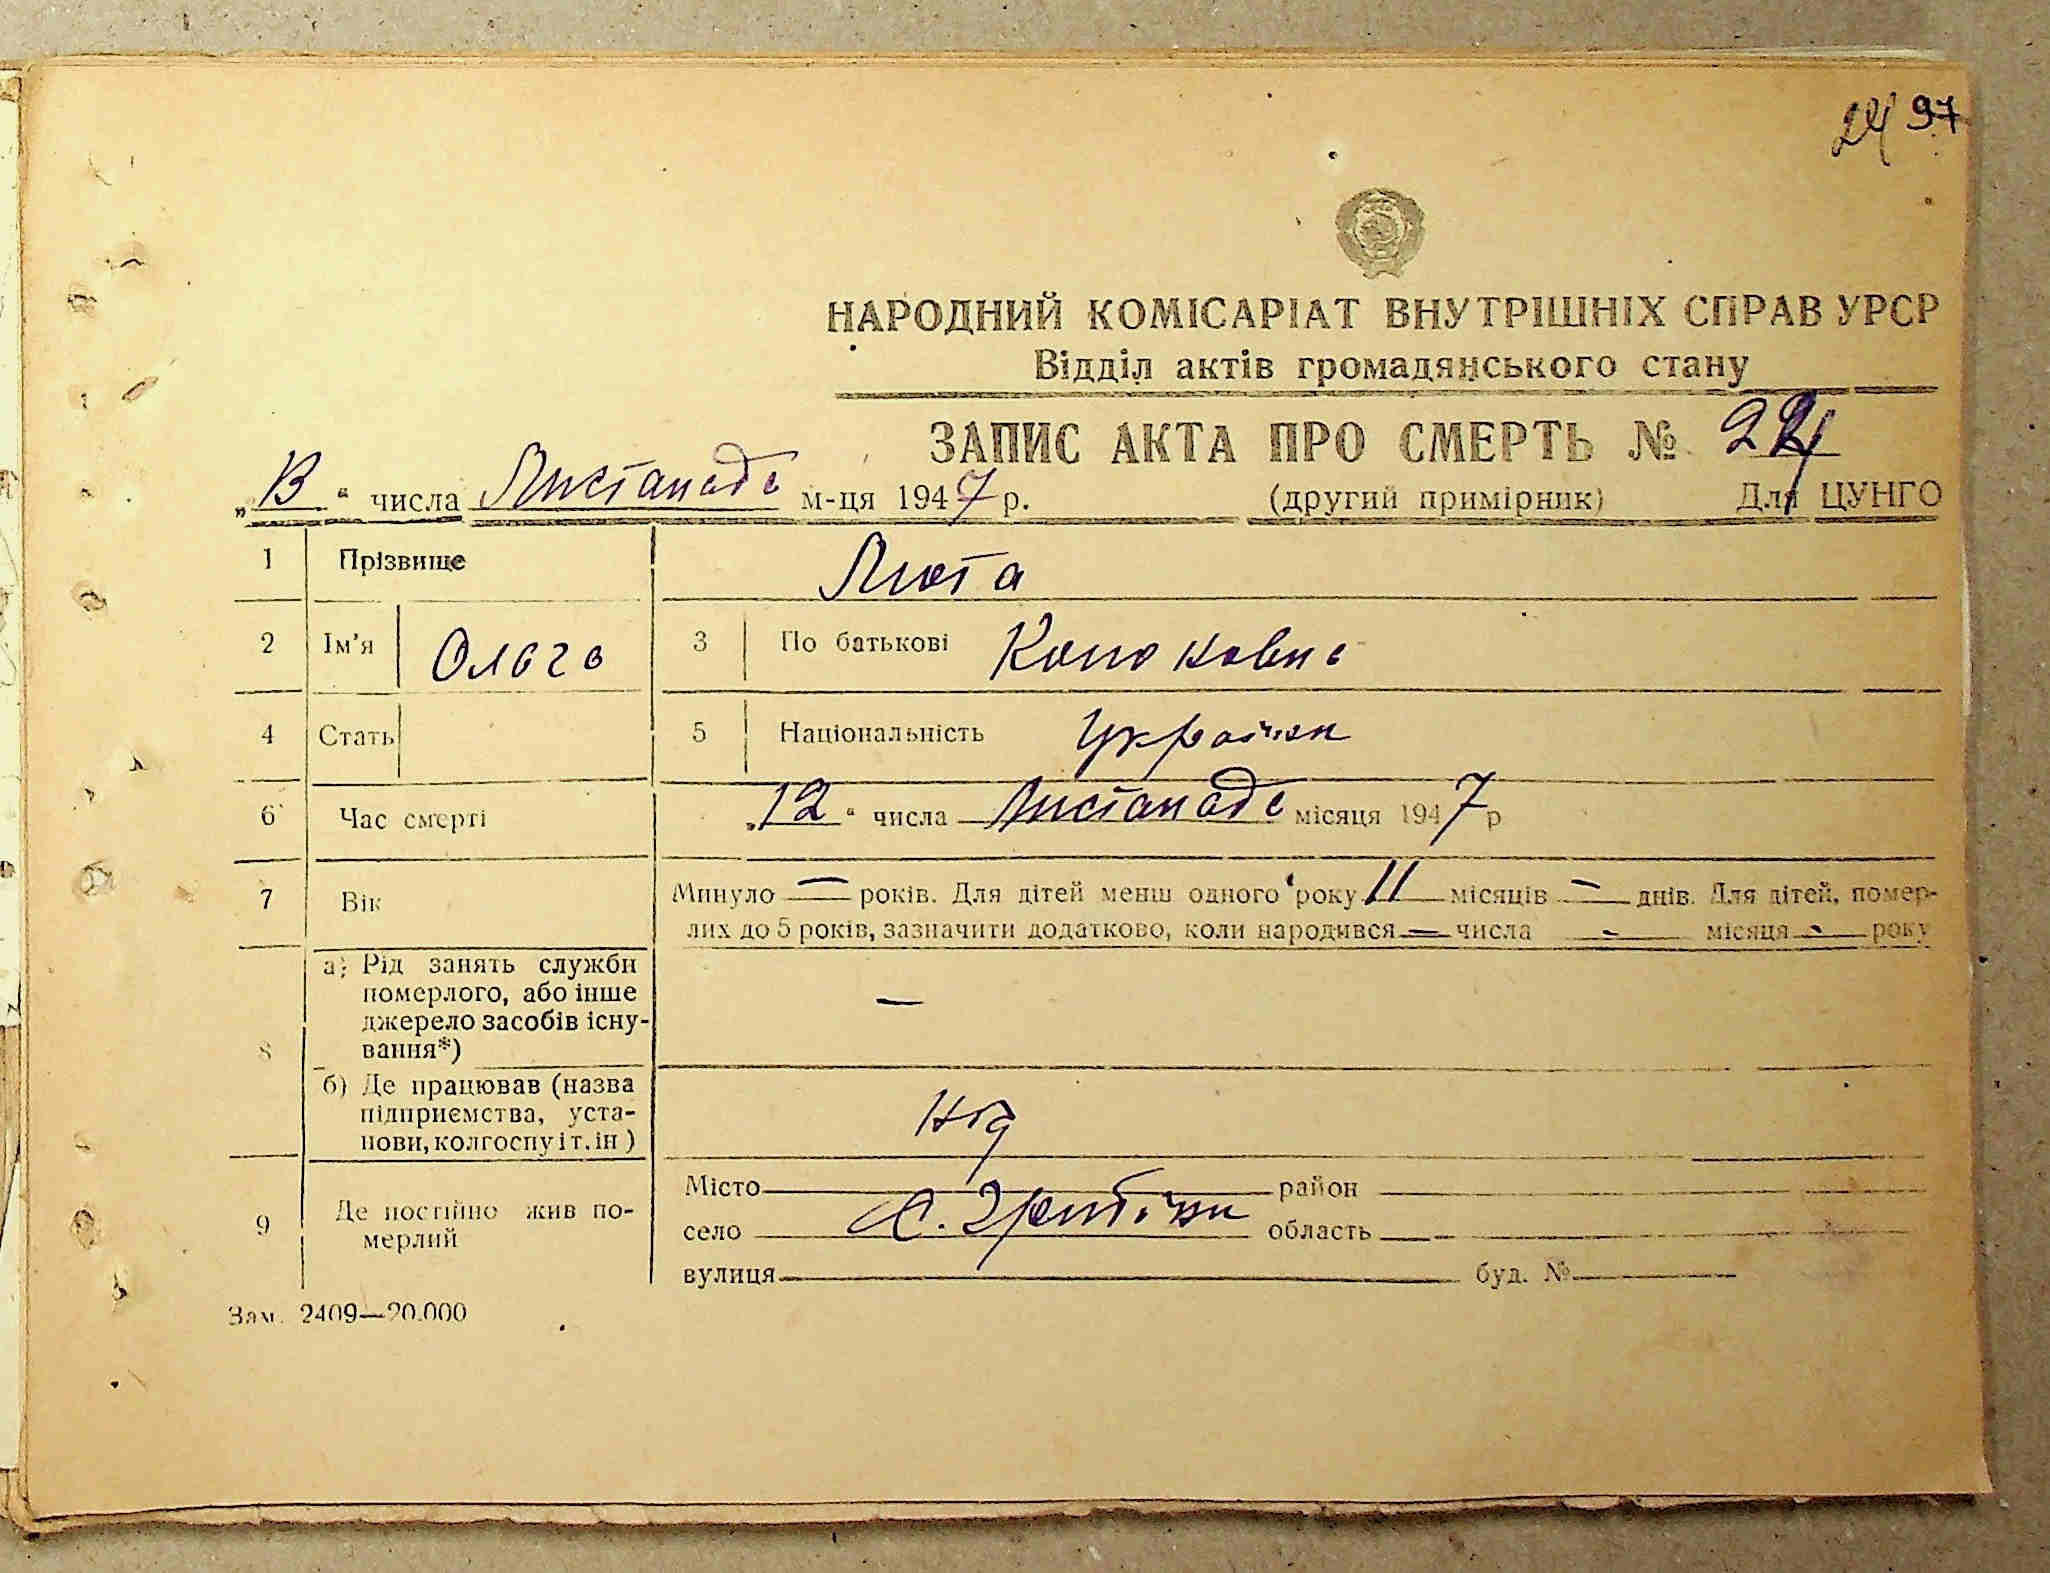 97
НАРОДНИЙ КОМІСАРІАТ ВНУТРІШНІХ СПРАВ УРСР
Відділ актів громадянського стану
ЗАПИС АКТА ПРО СМЕРТЬ №
„13“ числа Листопада м-ця 1947 р. (другий примірник) Для ЦУНГО
1 Прізвище Люта
2 Ім'я Ольга 3 По батькові
4 Стать 5 Національність Українка
6 Час смерті „12“ числа Листопада місяця 1947 р
7 Вік Минуло — років. Для дітей менш одного року 11 місяців — днів. Для дітей, помер-
лих до 5 років, зазначити додатково, коли народився — числа - місяця - року
8 а) Рід занять служби
померлого, або інше
джерело засобів існу-
вання*) —
б) Де працював (назва
підприємства, уста-
нови, колгоспу і т. ін)
9 Де постійно жив по-
мерлий
Місто район
село с. область
вулиця буд. №
Зам. 2409—20.000